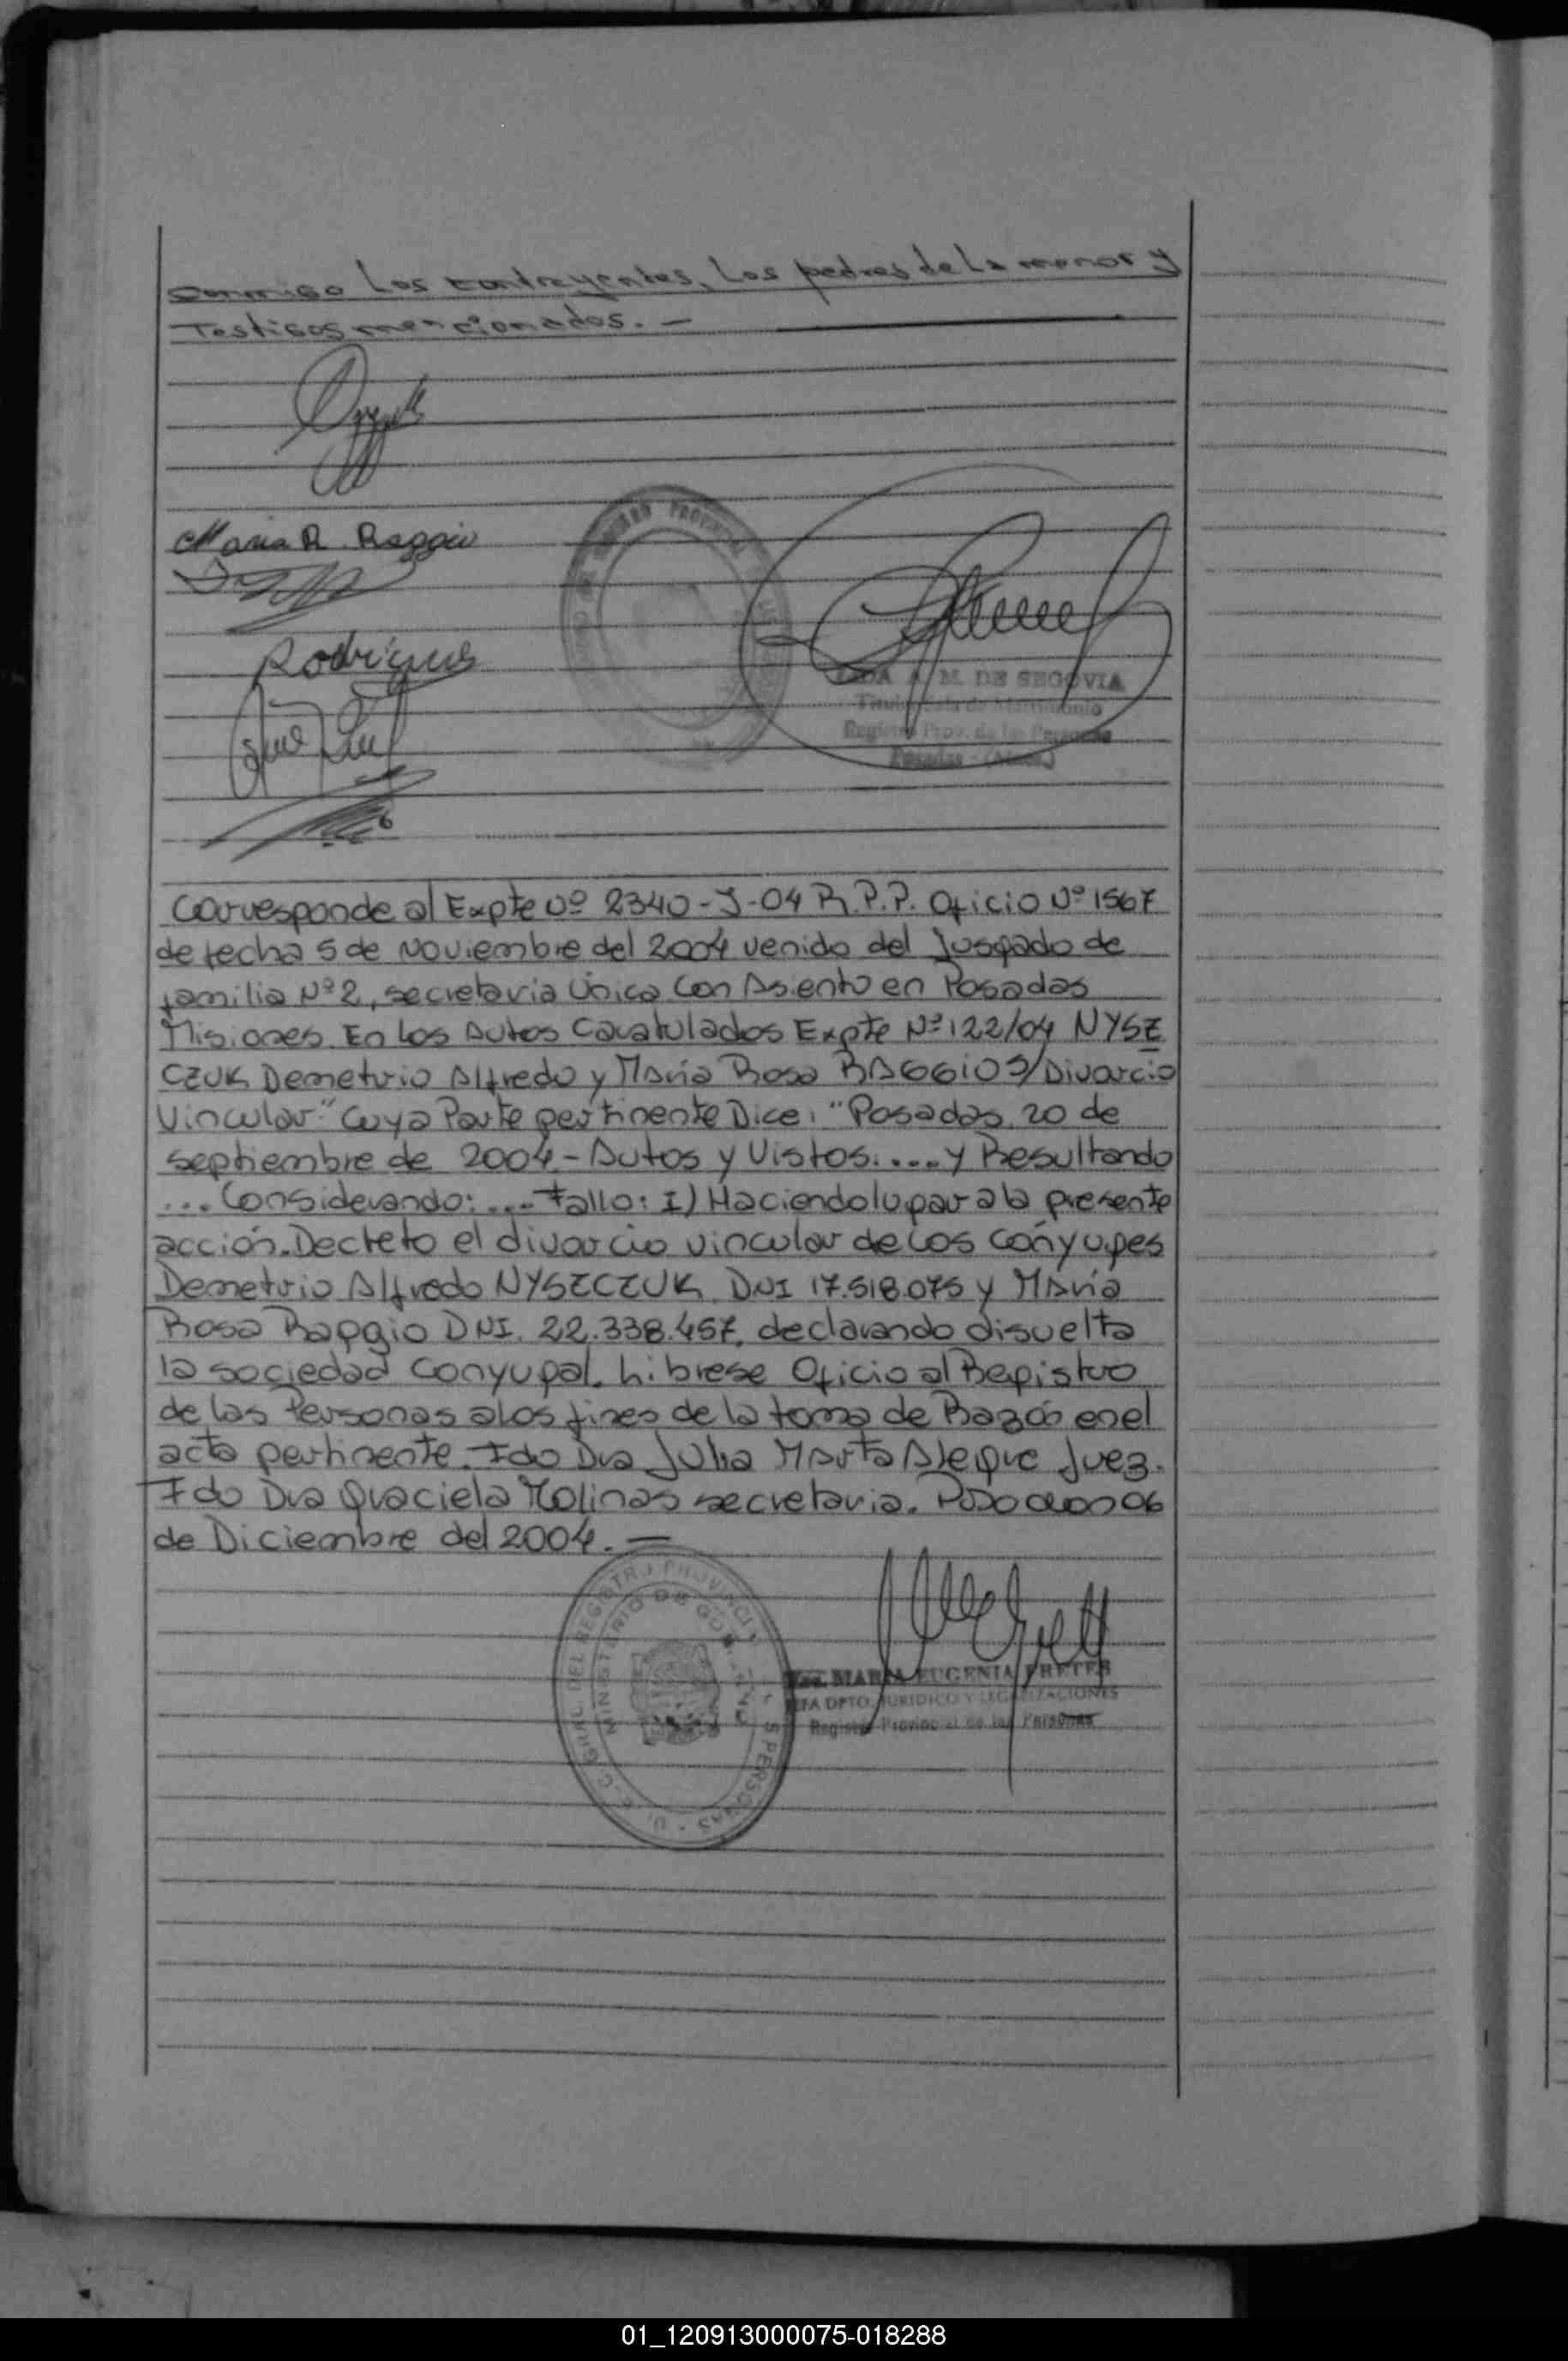 conmigo Los contrayentes, Los padres de La menor y
Testigos mencionados. —
Maria R. Raggio
Rodrigues
A. M. DE SEGOVIA
Registro Prov. de las Personas
Posadas - (Mnes.)
Corresponde al Expte Nº 2340-J-04 R.P.P. Oficio Nº 1567
de fecha 5 de Noviembre del 2004 venido del Jusgado de
familia Nº 2, secretaria Unica Con Asiento en Posadas
Misiones. En Los Autos Caratulados Expte Nº 122/04 NYSZ
CZUK Demetrio Alfredo y María Rosa RAGGIO S/Divorcio
Vincular" Cuya Parte pertinente Dice: "Posadas, 20 de
septiembre de 2004 - Autos y Vistos.... y Resultando
... Considerando: ... Fallo: I) Haciendo lugar a la presente
acción. Decreto el divorcio vincular de Los Cónyuges
Demetrio Alfredo NYSZCZUK DNI 17.518.075 y María
Rosa Raggio DNI. 22.338.457, declarando disuelta
la sociedad Conyugal. Librese Oficio al Registro
de las Personas a Los fines de la toma de Razón en el
acta pertinente. Fdo Dra Julia Marta Alegre Juez.
Fdo Dra Graciela Molinas secretaria. Posadas 06
de Diciembre del 2004. —
MINISTERIO DE GOBIERNO
MARIA EUGENIA FRETES
JEFA DPTO. JURIDICO Y LEGALIZACIONES
Registro Provincial de las Personas
01_120913000075-018288